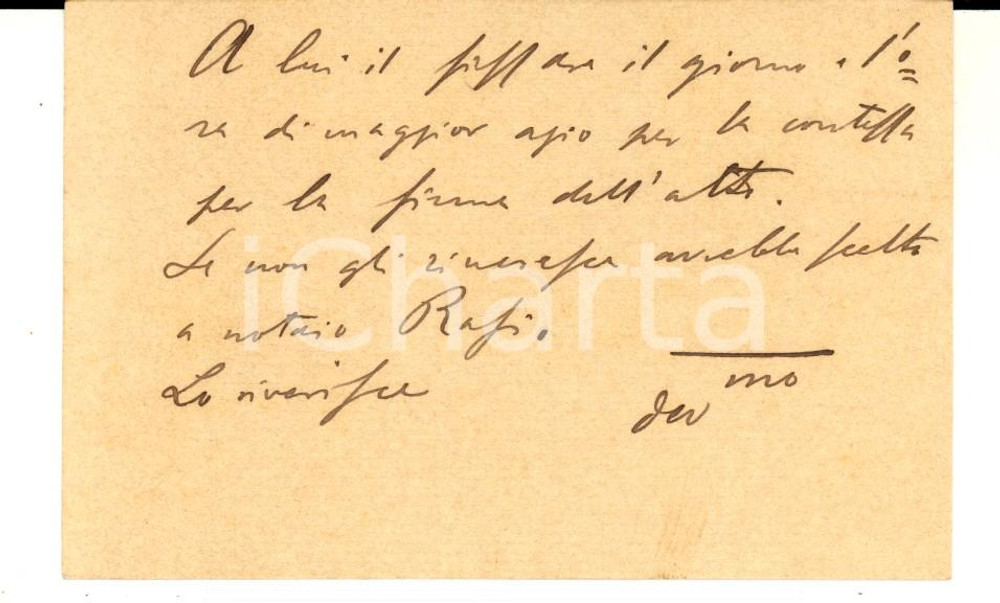 A lui il fissare il giorno e l'o=
ra di maggior agio per la contessa
per la firma dell'atto.
Se non gli rincresce avrebbe scelto
a notaio
Lo riverisce
dev mo
iCharta